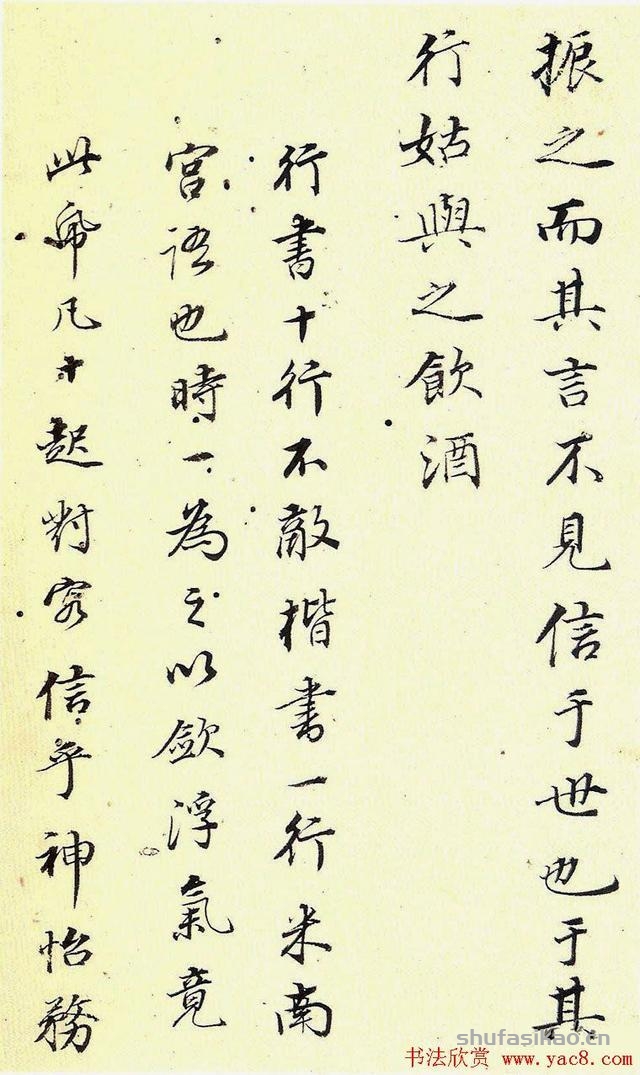 振之而其言不見信于世也于其
行姑與之飲酒
行書十行不敵楷書一行米南
宮語也時一為之以斂浮氣竟
此帋凡十起對客信乎神怡務
shufasikao.cn
书法欣赏 www.yac8.com